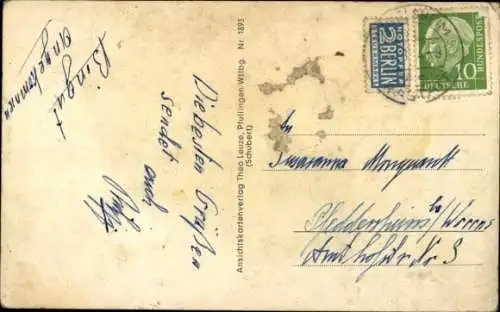 Bin gut
angekommen
Die besten Grüßen
sendet euch
Ansichtskartenverlag Theo Leuze, Pfullingen-Wttbg. Nr. 1895
(Schubert)
NOTOPFER
2 BERLIN
STEUERMARKE
DEUTSCHE
BUNDESPOST
10
An
Susanna Marquardt
Pfeddersheim b/ Worms
Amthofstr. Nr. 3